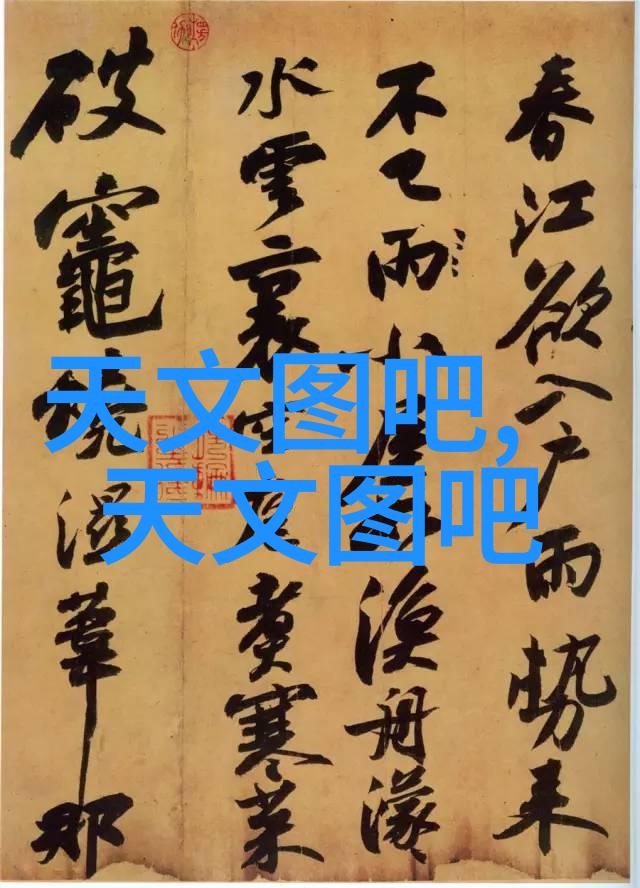 春江欲入户雨勢来
不已雨小屋如漁舟濛
水雲裏空庖煑寒菜
破竈燒濕葦那
天文图吧,
天文图吧